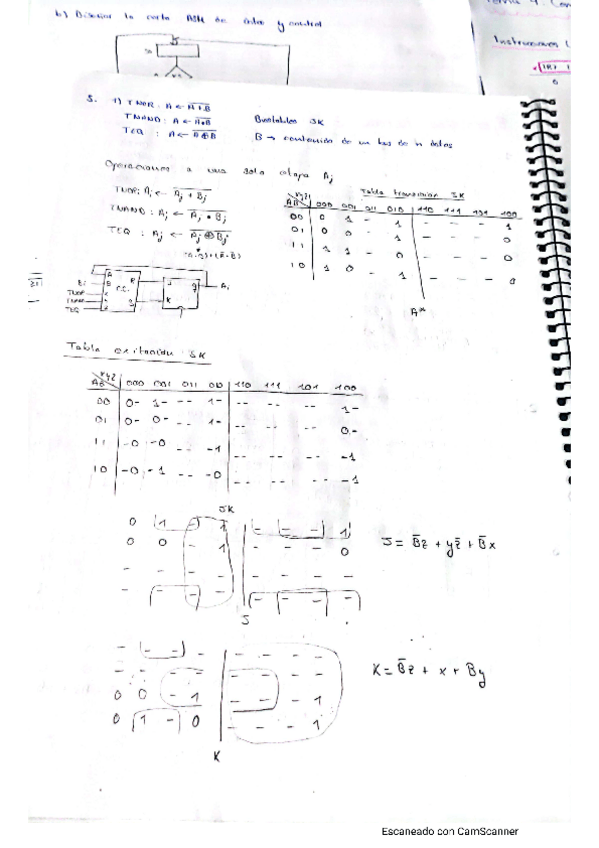 b) Diseñar la carta ASM de datos y control
Instrucciones
(IR)
S. 1) TNOR: A ← A+B
TNAND: A ← A•B
Biestables JK
TEQ : A ← A⊕B
B → contenido de un bus de n datos
Operaciones a una sola etapa Aj
TNOR: Aj ← Aj + Bj
TNAND: Aj ← Aj • Bj
TEQ : Aj ← Aj ⊕ Bj
Tabla transición JK
AB xyz 000 001 011 010 110 111 101 100
00 0 1 - 1 - - - 1
01 0 0 - 1 - - - 0
11 1 1 - 0 - - - 0
10 1 0 - 1 - - - 0
A*
Bi
TNOR
TEQ
A
B
C.C.
J
K
q
Ai
Tabla excitación JK
AB xyz 000 001 011 010 110 111 101 100
00 0- 1- -- 1- -- -- -- 1-
01 0- 0- -- 1- -- -- -- 0-
11 -0 -0 -- -1 -- -- -- -1
10 -0 -1 -- -0 -- -- -- -1
JK
0 1 - 1 - - - 1
0 0 - 1 - - - 0
- - - - - - - -
- - - - - - - -
J
J = B̄z + yz̄ + B̄x
- - - - - - - -
- - - - - - - -
0 0 - 1 - - - 1
0 1 - 0 - - - 1
K
K = B̄z + x + By
Escaneado con CamScanner